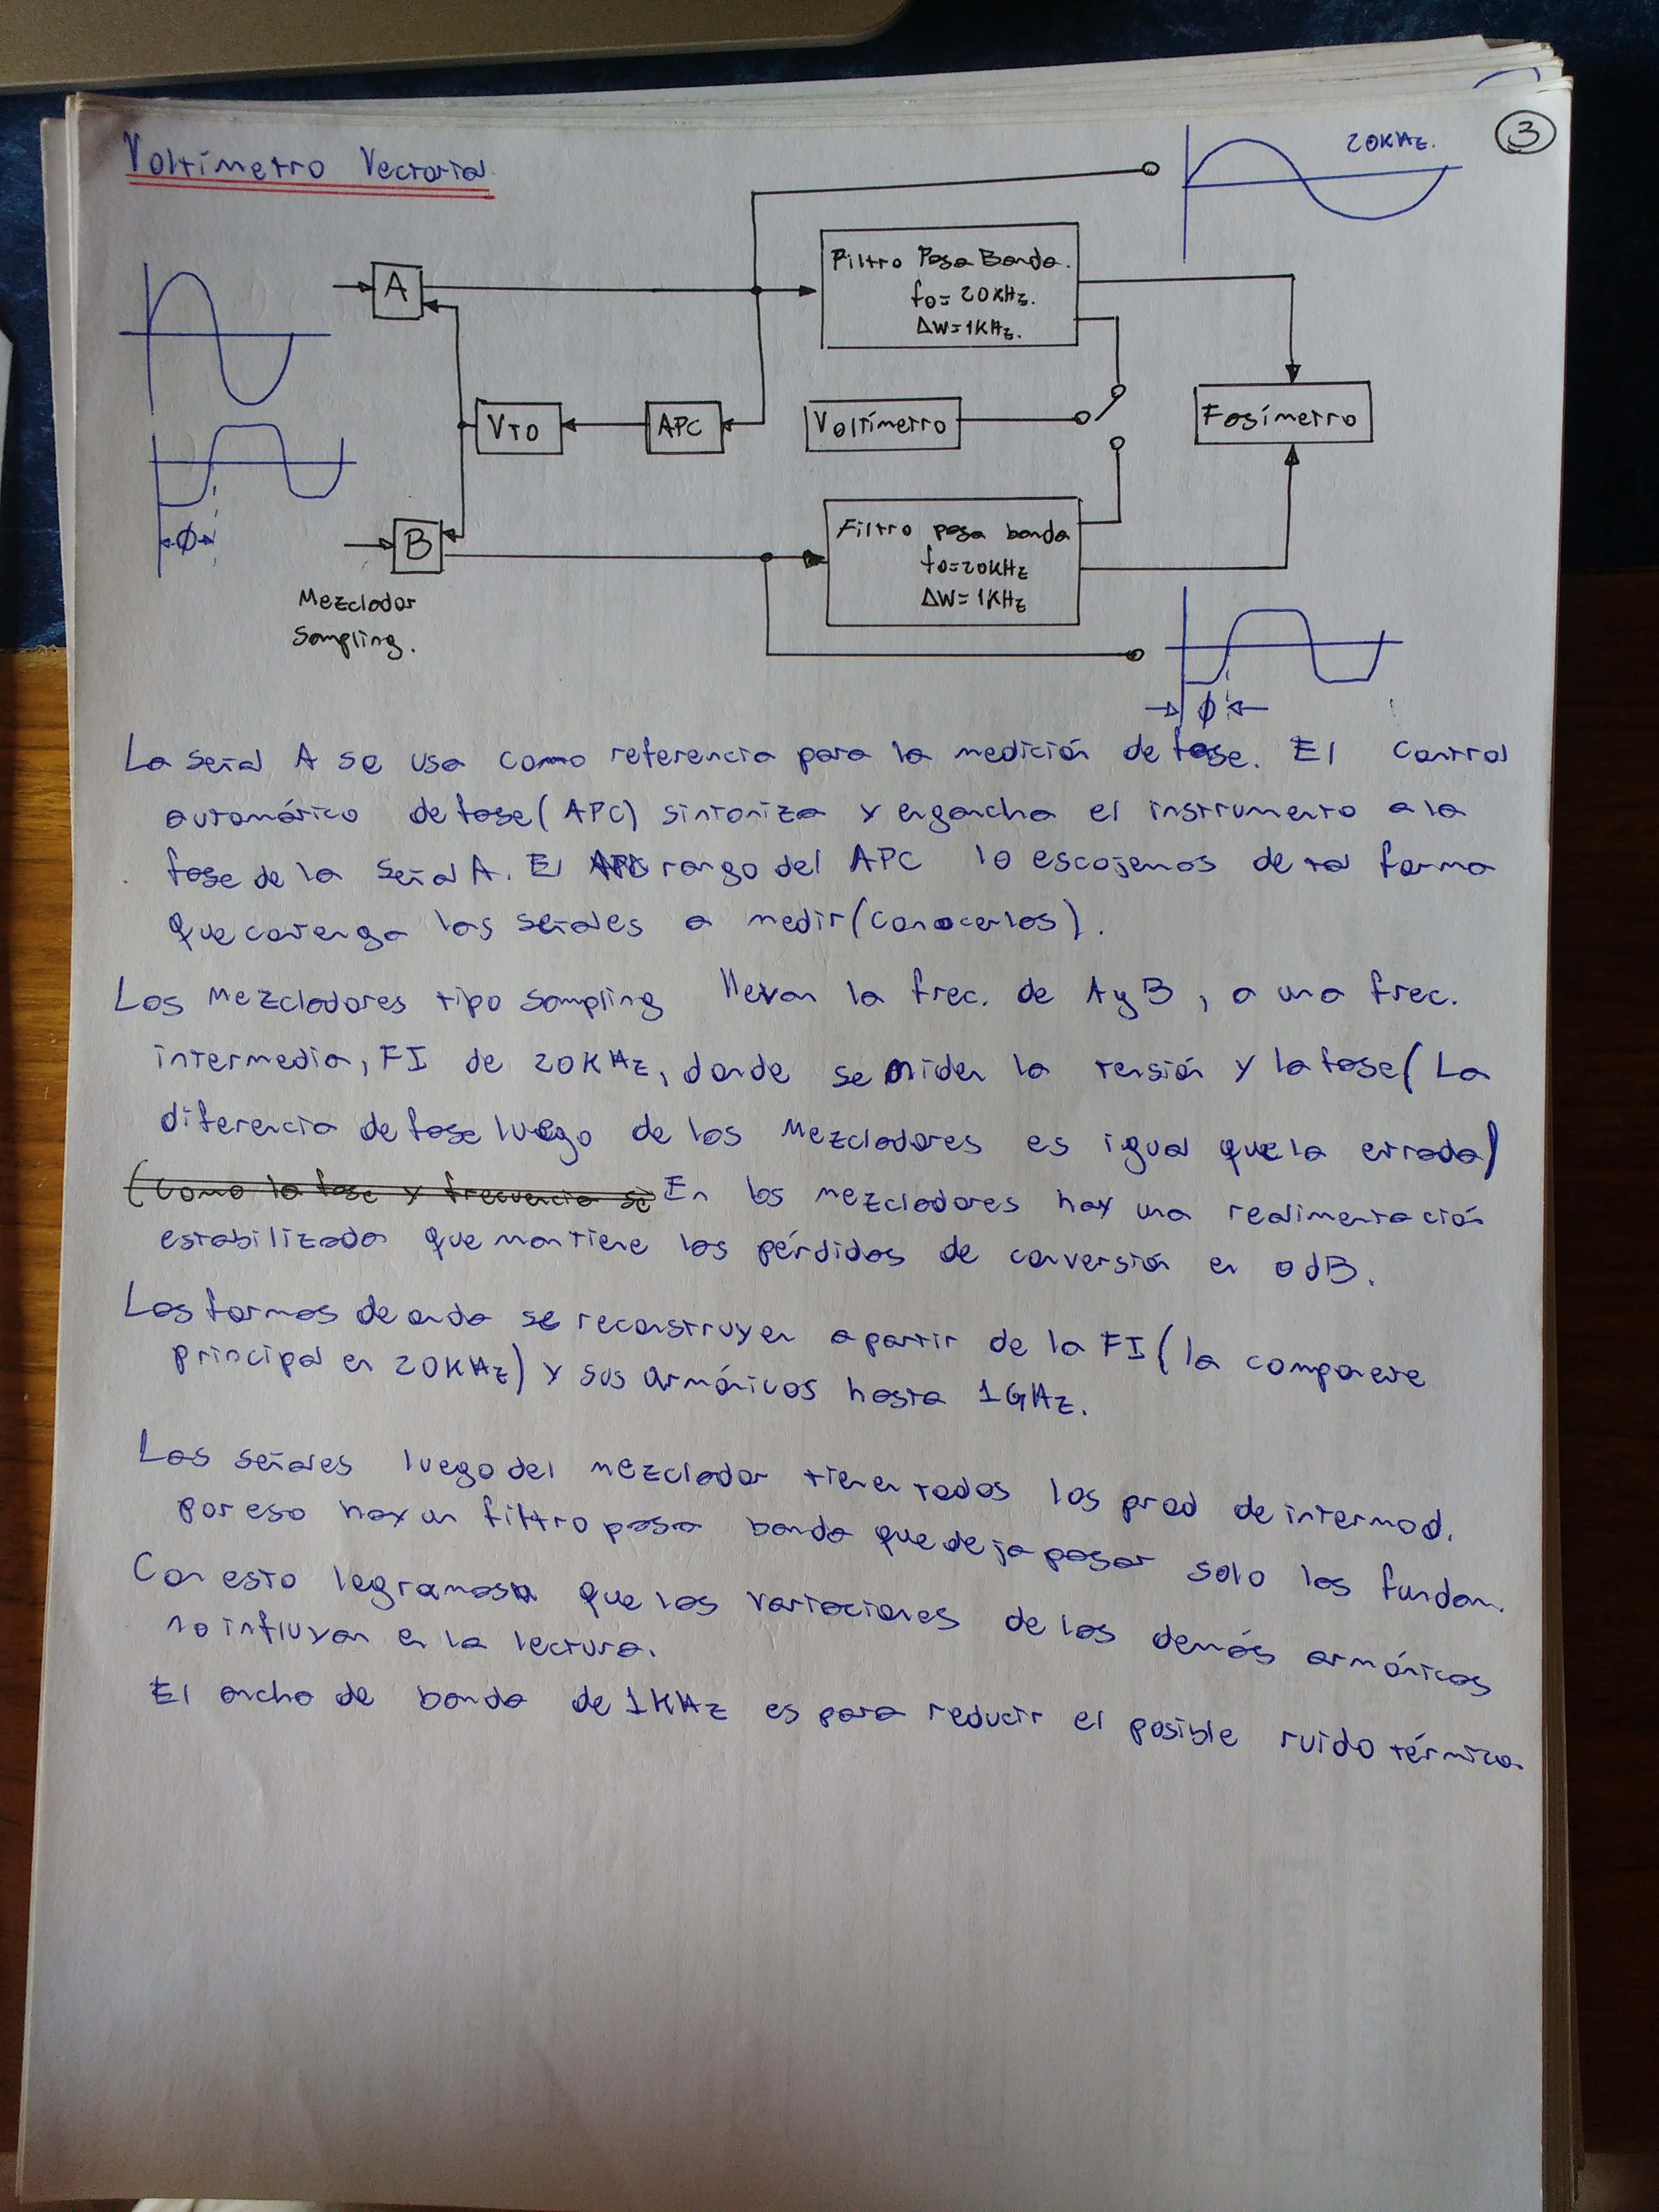 3
Voltímetro Vectorial
20KHz.
A
Filtro Pasa Banda.
fo= 20KHz.
ΔW=1KHz.
VTO
APC
Voltímetro
Fasímetro
ϕ
B
Filtro pasa banda
fo=20KHz
ΔW= 1KHz
Mezclador
Sampling.
ϕ
La señal A se usa como referencia para la medición de fase. El control
automático de fase (APC) sintoniza y engancha el instrumento a la
fase de la señal A. El rango del APC lo escojemos de tal forma
que contenga las señales a medir (conocerlas).
Los Mezcladores tipo sampling llevan la frec. de A y B, a una frec.
intermedia, FI de 20KHz, donde se miden la tensión y la fase (La
diferencia de fase luego de los Mezcladores es igual que la entrada)
(Como la fase y frecuencia se En los mezcladores hay una realimentación
estabilizada que mantiene las pérdidas de conversión en 0dB.
Las formas de onda se reconstruyen a partir de la FI (la componente
principal en 20KHz) y sus armónicos hasta 1GHz.
Las señales luego del mezclador tienen todos los prod de intermod.
por eso hay un filtro pasa banda que deja pasar solo las fundam.
Con esto logramos que las variaciones de los demás armónicos
no influyan en la lectura.
El ancho de banda de 1KHz es para reducir el posible ruido térmico.